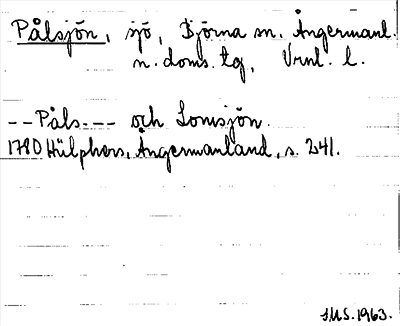 Pålsjön, sjö, Björna sn. Ångermanl.
n. doms. tg, Vrnl. l.
--Påls--- och Lomsjön.
1780 Hülphers, Ångermanland, s. 241.
J.M.S. 1963.